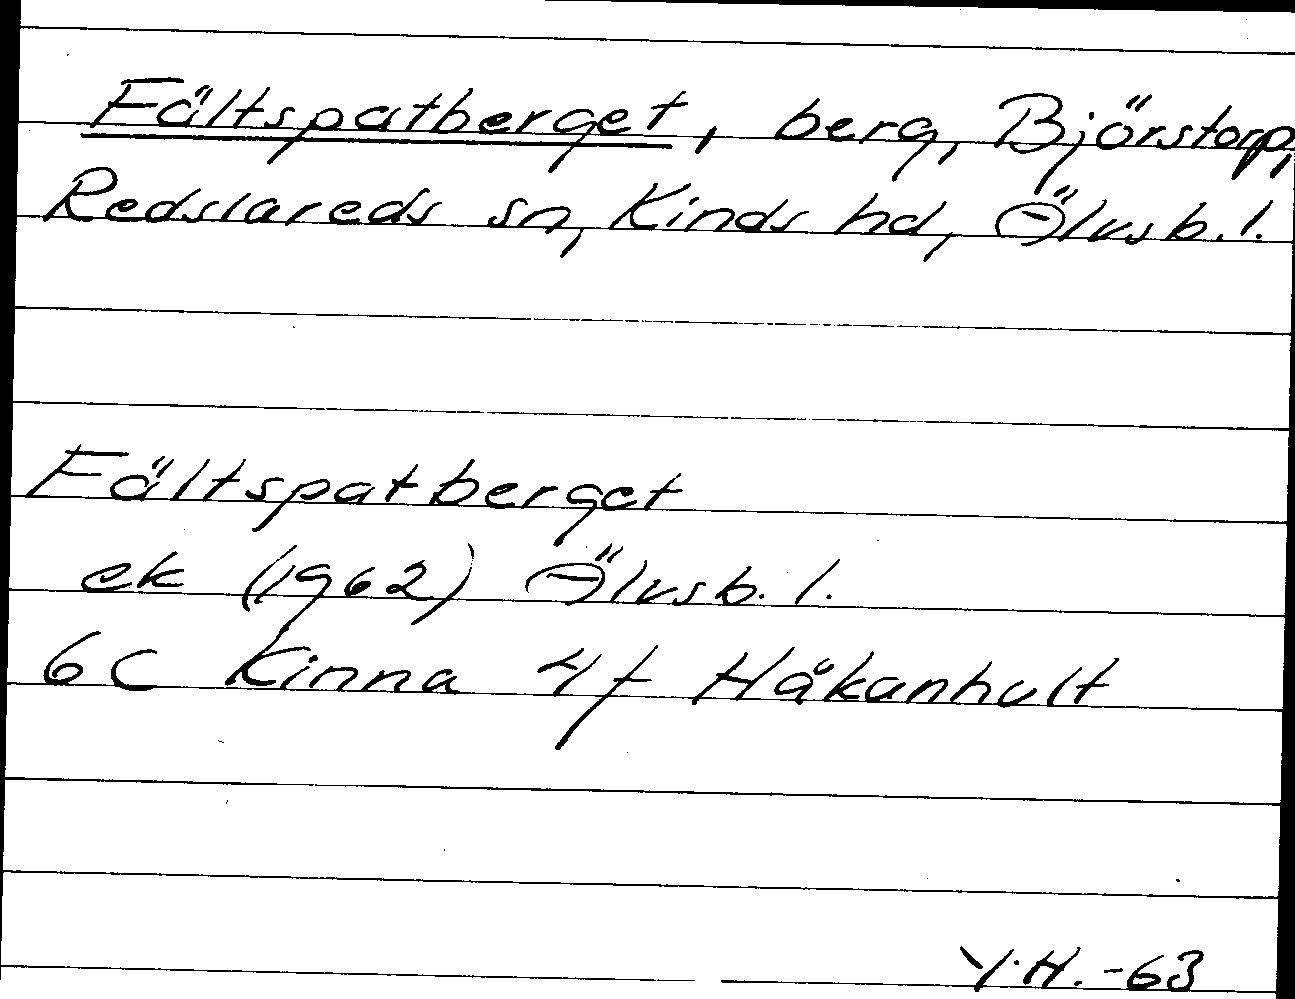 Fältspatberget, berg, Björstorp,
Redslareds sn, Kinds hd, Älvsb. l.
Fältspatberget
ek (1962) Älvsb. l.
6C Kinna 4f Håkanhult
Y.H. -63